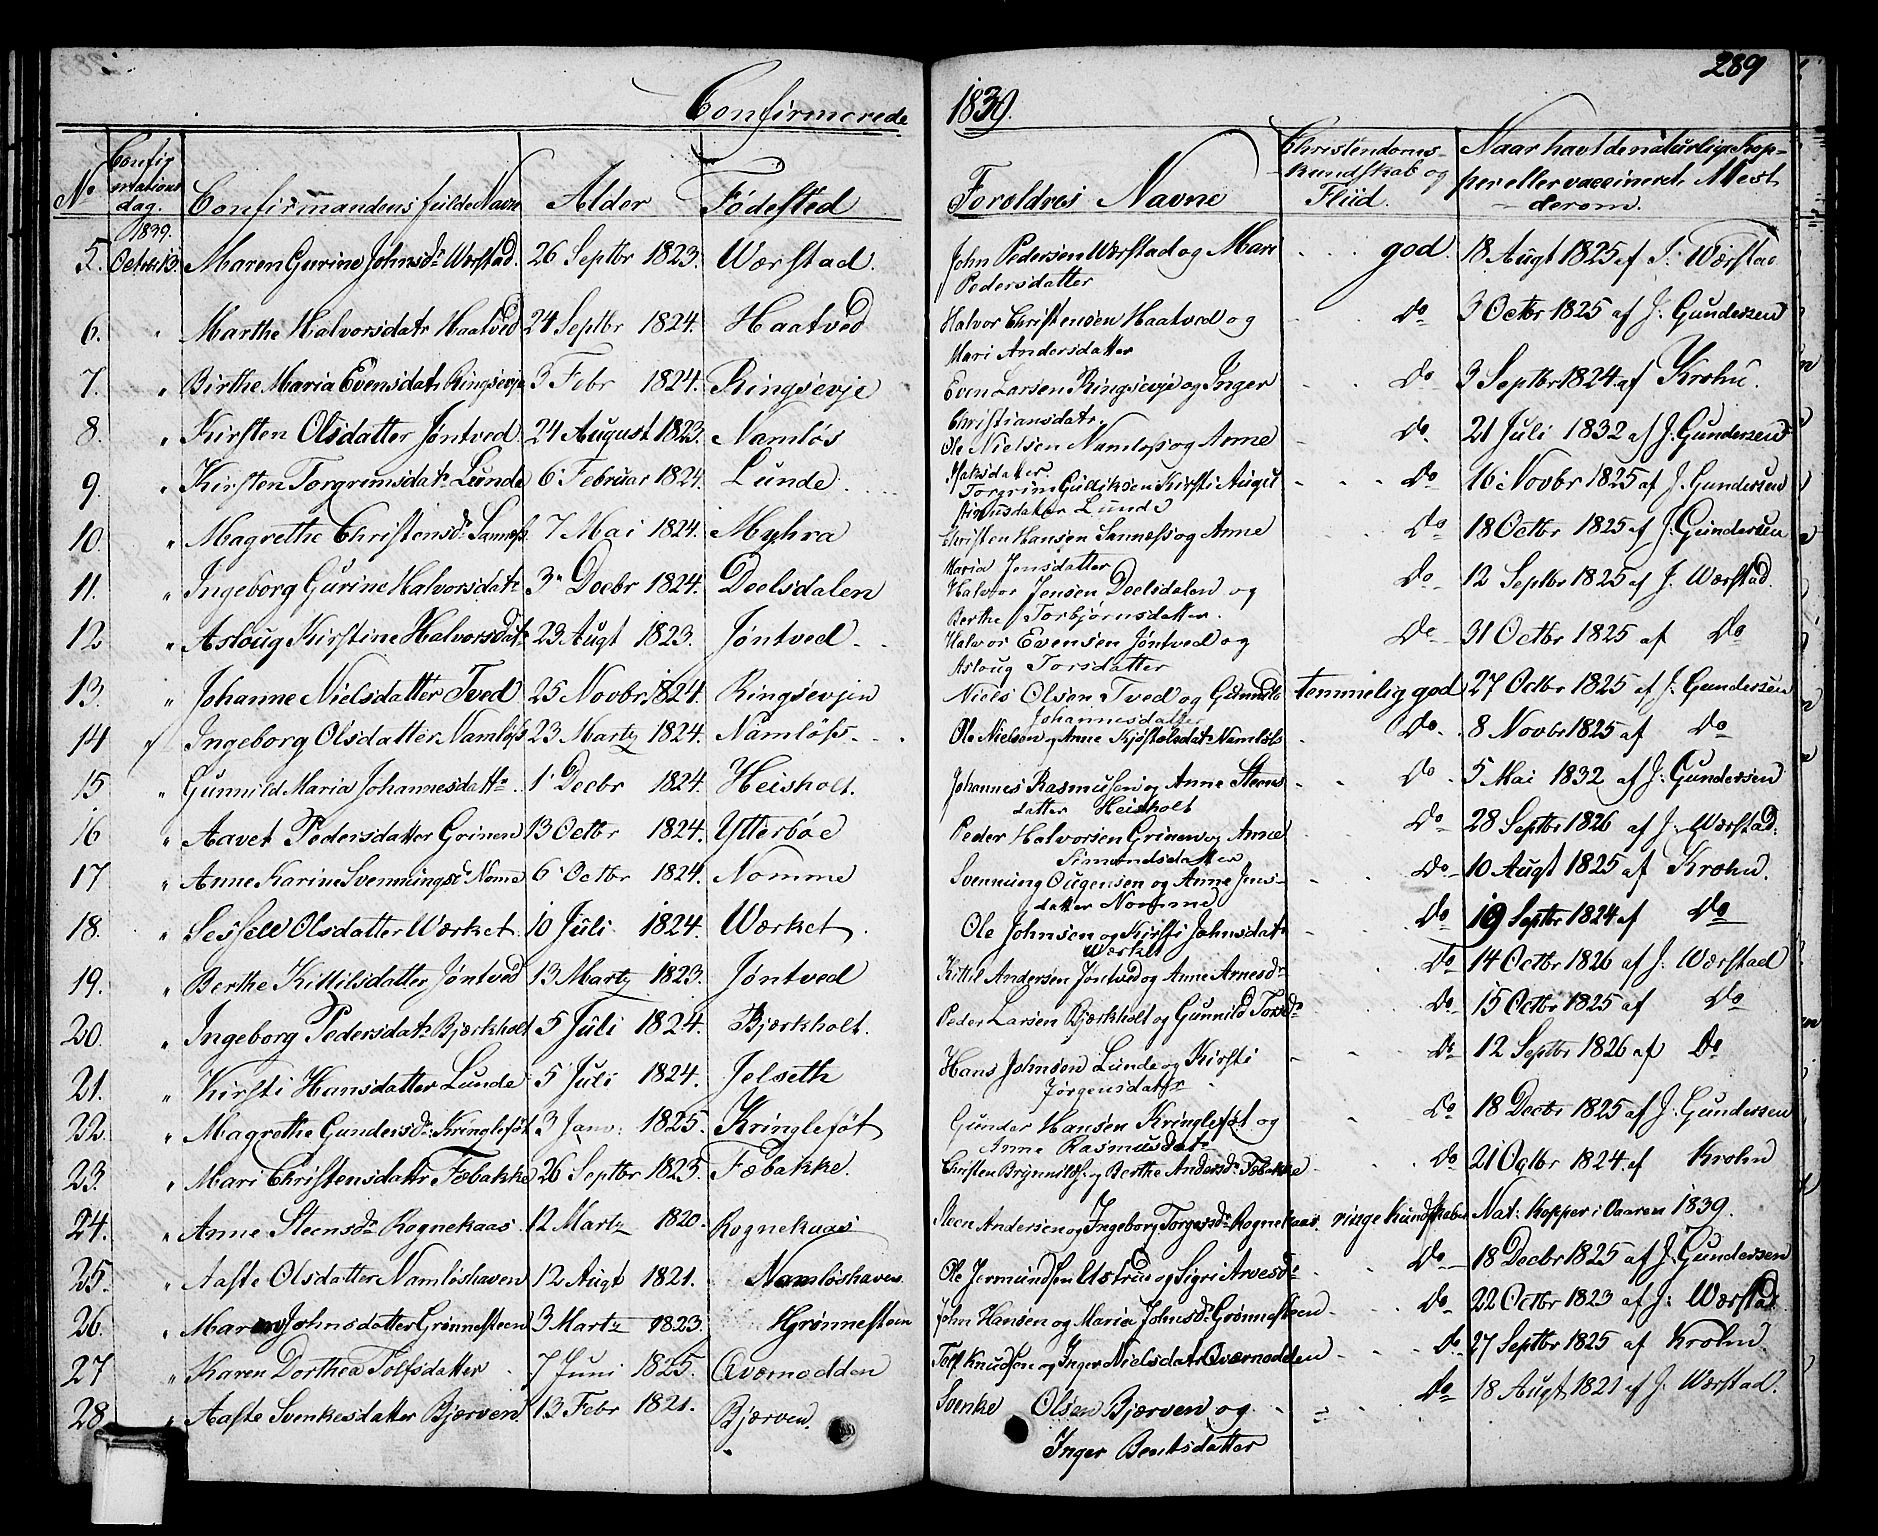 289
Confirmerede 1839.
No Confirmations dag. Confirmandens fulde Navn Alder Födested Foreldres Navne Christendoms-kundskab og Fliid. Naar havt de naturlige Kopper eller vaccineret. Med derom.
1839.
5. Octbr 13. Maren Gurine Johnsdr Wærstad. 26 Septbr 1823. Wærstad. John Pedersen Wærstad og Mari god. 18 Augt 1825 af J. Wærstad
Pedersdatter
6. " Marthe Halvorsdatr Haatved 24 Septbr 1824. Haatved Halvor Christensen Haatved og Do 3 Octbr 1825 af J. Gundersen
Mari Andersdatter
7. " Birthe Maria Evensdatr Ringsevje 3 Febr 1824. Ringsevje Even Larsen Ringsevje og Inger Do 3 Septbr 1824 af Krohn.
Christiansdatr.
8. " Kirsten Olsdatter Jøntved 24 August 1823. Namløs Ole Nielsen Namløss og Anne Do. 21 Juli 1832 af J. Gundersen
9. " Kirsten Torgrimsdatr Lunde 6 Februar 1824. Lunde Torgrim Gulliksen Kirsti Augus Do 16 Novbr 1825 af J. Gundersen
tinusdater Lunde
10. " Magrethe Christensdr Sannæss. 7 Mai 1824. Myhra Christen Hansen Sannæss og Anne Do 18 Octbr 1825 af J. Gundersen
Maria Jensdatter
11. " Ingeborg Gurine Halvorsdatr 3 Decbr 1824. Deelsdalen Halvor Jensen Deelsdalen og Do 12 Septbr 1825 af J. Wærstad.
Berthe Torbjørnsdatter.
12 " Asloug Kirstine Halvorsdatr 23 Augt 1823. Jøntved Halvor Evensen Jøntved og Do 31 Octbr 1825 af Do
Asloug Torsdatter
13. " Johanne Nielsdatter Tved 25 Novbr 1824. Ringsevjen Niels Olsen Tved og Gunnild temmelig god 27 Octbr 1825 af J. Gundersen
Johannesdatter
14 Ingeborg Olsdatter Namløss 23 Martz 1824. Namløss Ole Nielsen og Anne Kjøstolsdatr Namløss Do 8 Novbr 1825 af Do
15 " Gunnild Maria Johannesdattr 1 Decbr 1824. Heisholt. Johannes Rasmussen og Anne Steens Do 5 Mai 1832 af J. Gundersen
datter Heisholt
16 " Aavet Pedersdatter Grinen 13 Octbr 1824. Ytterböe Peder Halvorsen Grinen og Anne Do 28 Septbr 1826 af J. Wærstad.
Simonsdatter
17 " Anne Karine Svenningsdr Nomme 6 Octbr 1824. Nomme Svenning Ougensen og Anne Jens- Do 10 Augt 1825 af Krohn.
datter Nomme
18. " Sessell Olsdatter Wærket. 10 Juli 1824. Wærket. Ole Johnsen og Kirsti Johnsdatr Do 19 Septbr 1824 af Do
Wærket
19. " Berthe Kittilsdatter Jøntved 13 Martz 1823. Jøntved Kittil Andersen Jøntved og Anne Arnesdr Do 14 Octbr 1826 af J. Wærstad
20. " Ingeborg Pedersdatr Bjærkholt 5 Juli 1824. Bjærkholt. Peder Larsen Bjærkholt og Gunnild Torsdr Do 15 Octbr 1825 af Do
21. " Kirsti Hansdatter Lunde 5 Juli 1824. Jelseth Hans Johnsen Lunde og Kirsti Do 12 Septbr 1826 af Do
Jørgensdatr
22. " Magrethe Gundersdr Kringlefôt 3 Janv. 1825. Kringlefôt Gunder Hansen Kringlefôt og Do 18 Decbr 1825 af J. Gundersen
Anne Rasmusdatr
23. " Mari Christensdattr Fæbakke 26 Septbr 1823. Fæbakke. Christen Brynnilds. og Berthe Andersdr Fæbakke Do 21 Octbr 1824 af Krohn
24. " Anne Steensdr Rognekaas 12 Martz 1820. Rognekaas Steen Andersen og Ingeborg Torgersdr Rognekaas. ringe kundskaber Nat: Kopper i Vaaren 1839.
25. " Aaste Olsdatter Namløshaven 12 Augt 1821. Namløshaven Ole Jermundsen Ustrus og Sigri Arvesdr Do 18 Decbr 1825 af J. Gundersen
26. " Maren Johnsdatter Grønnesteen 3 Martz 1823. Grønnesteen John Hansen og Maria Johnsdr Grønnesteen Do 22 Octbr 1823 af J. Wærstad
27 " Karen Dorthea Tolfsdatter 7 Juni 1825. Oværnodden Tolf Knudsen og Inger Nielsdatr Oværnodden Do 27 Septbr 1825 af Krohn.
28 " Aaste Svenkesdatter Bjærven 13 Febr 1821. Bjærven. Svenke Olsen Bjærven og Do 18 Augt 1821 af J. Wærstad.
Inger Bentsdatter